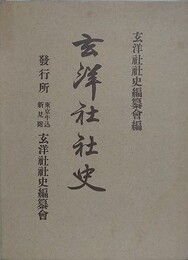 玄洋社社史編纂會編
玄洋社社史
發行所
東京牛込
新見附
玄洋社社史編纂會